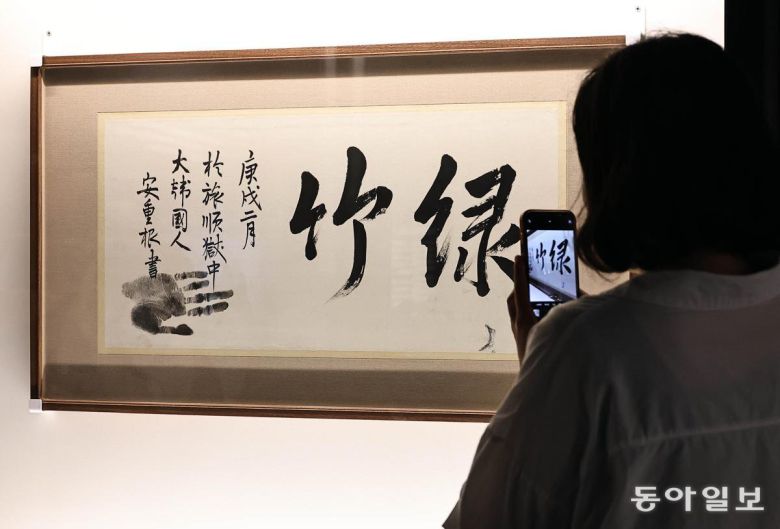 绿竹
庚戌二月
於旅順獄中
大韓國人
安重根書
绿竹
동아일보